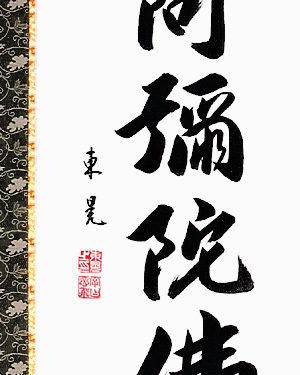 阿彌陀佛
東晃